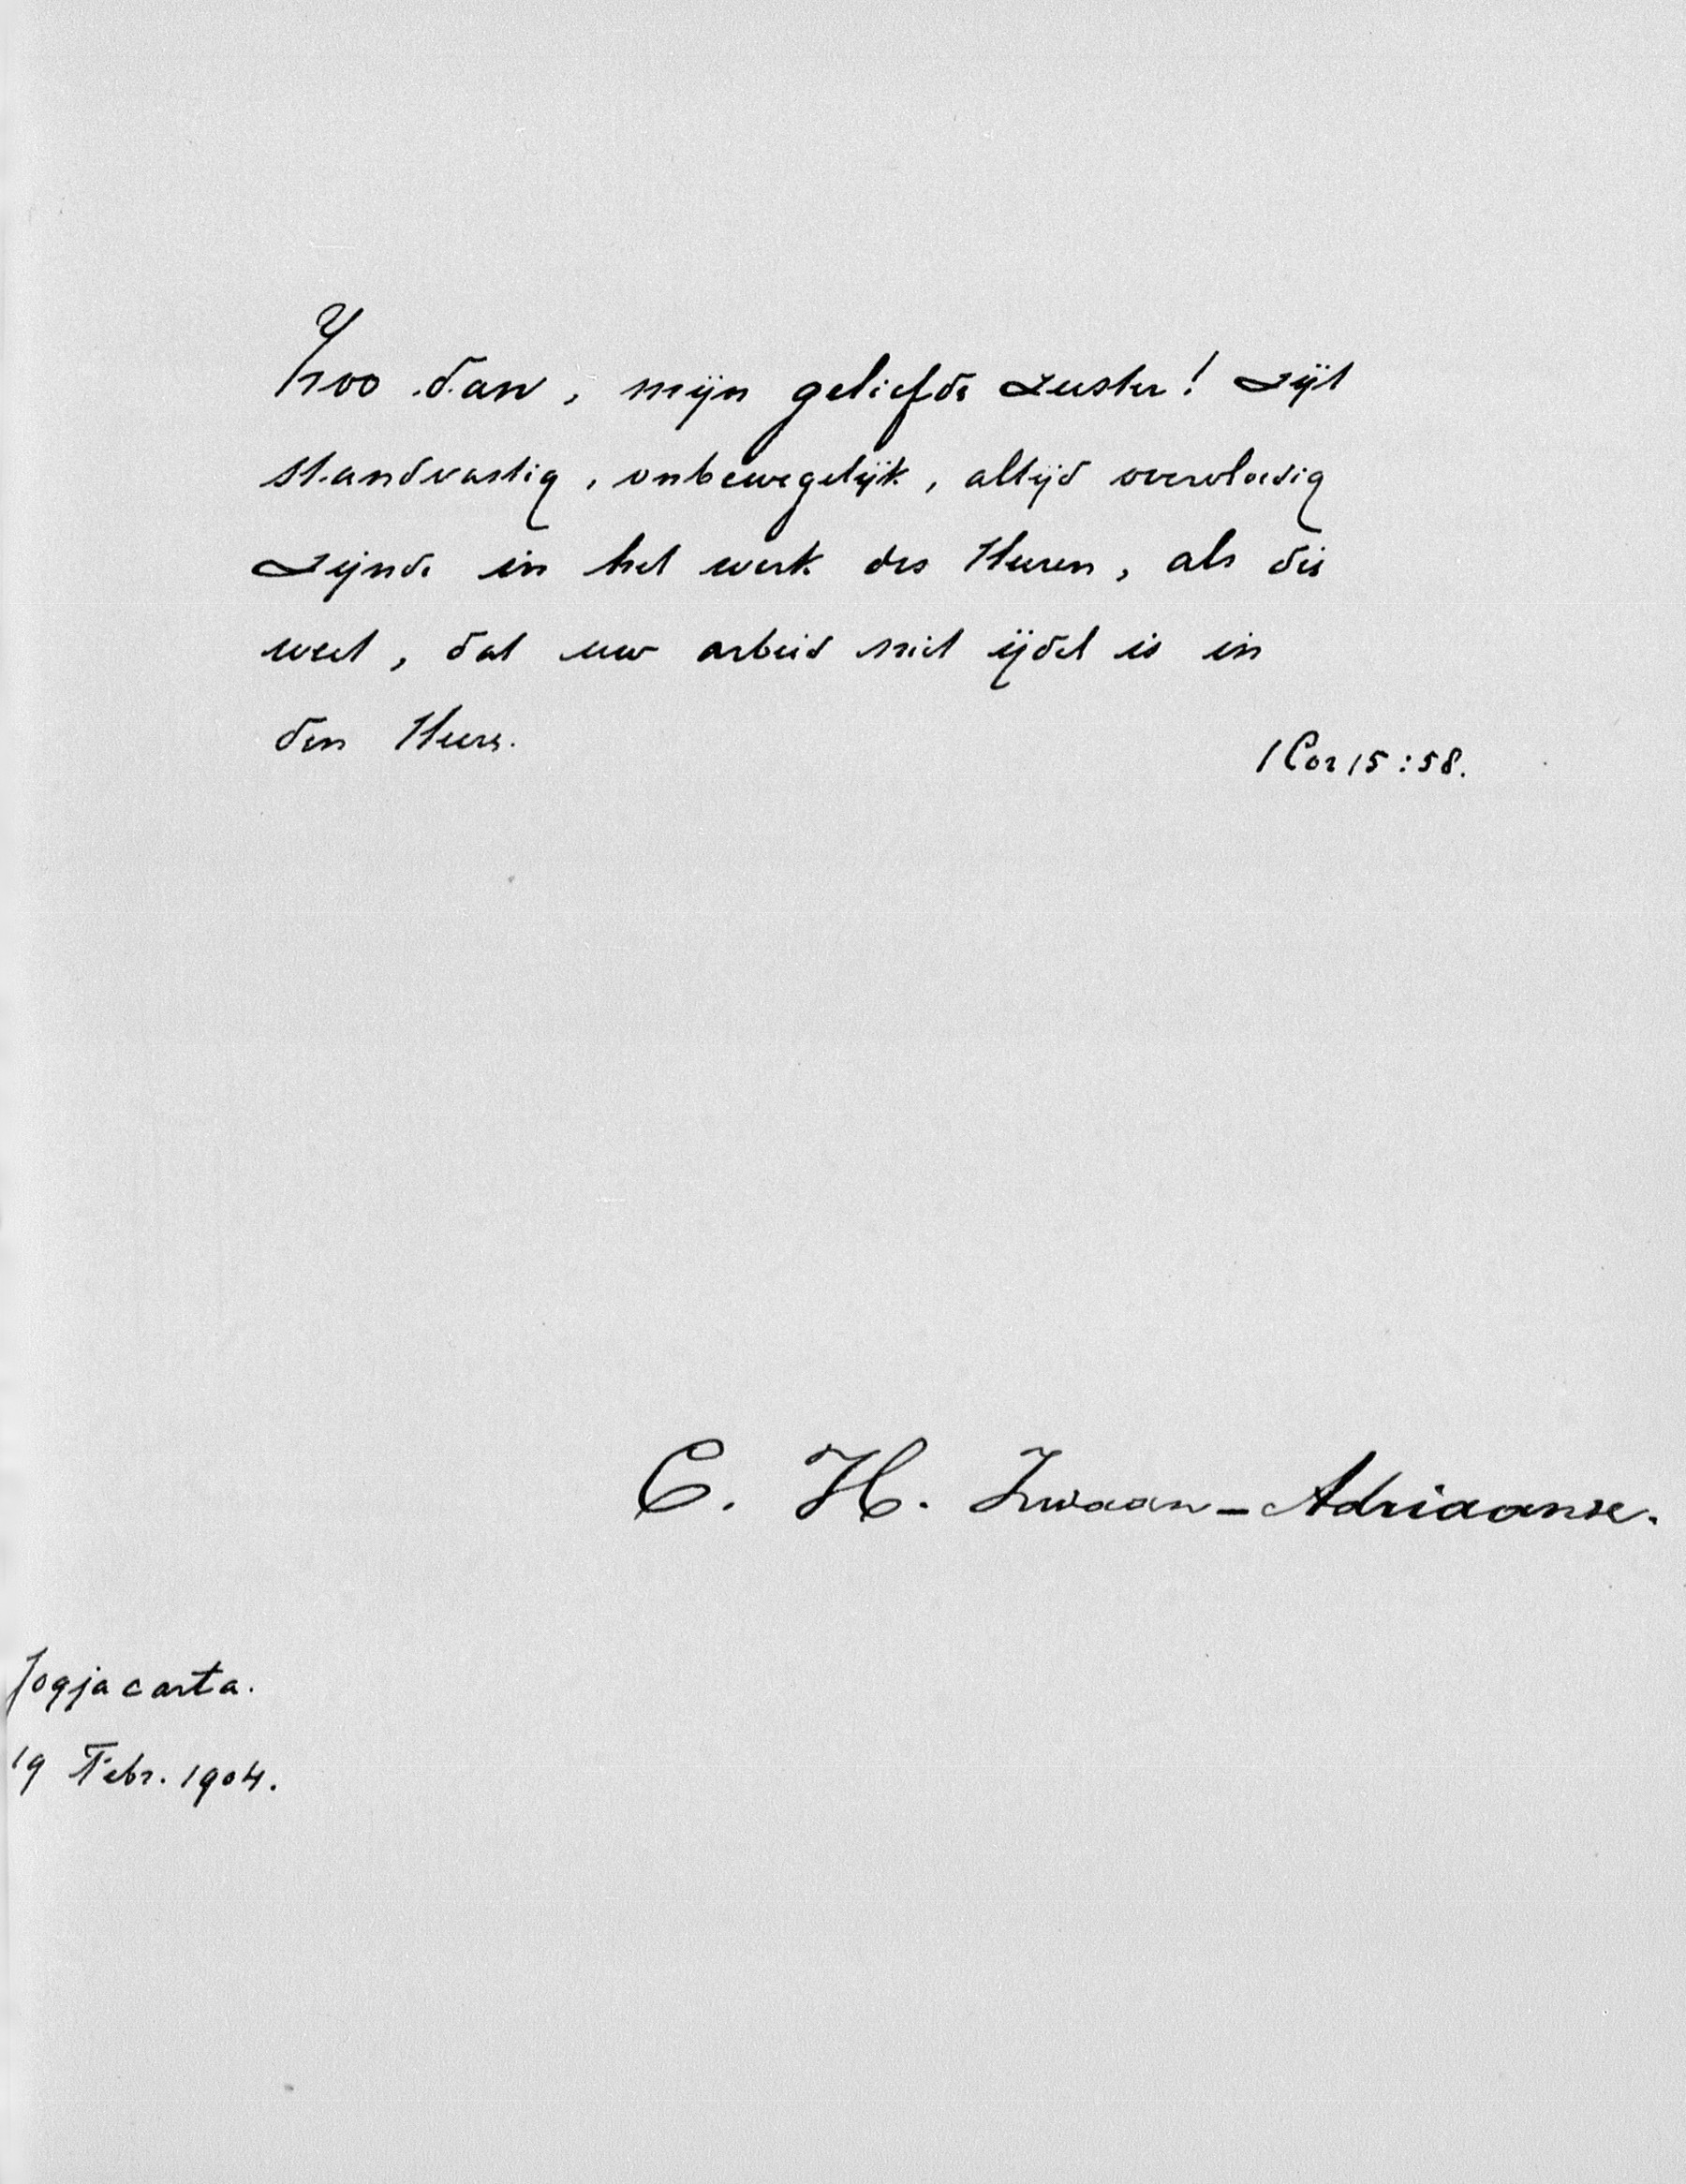 Zoo dan, mijn geliefde zuster! zijt
standvastig, onbewegelijk, altijd overvloedig
zijnde in het werk des Heeren, als die
weet, dat uw arbeid niet ijdel is in
den Heere.
1 Cor 15:58.
C. H. Zwaan-Adriaanse.
Jogjacarta.
19 Febr. 1904.